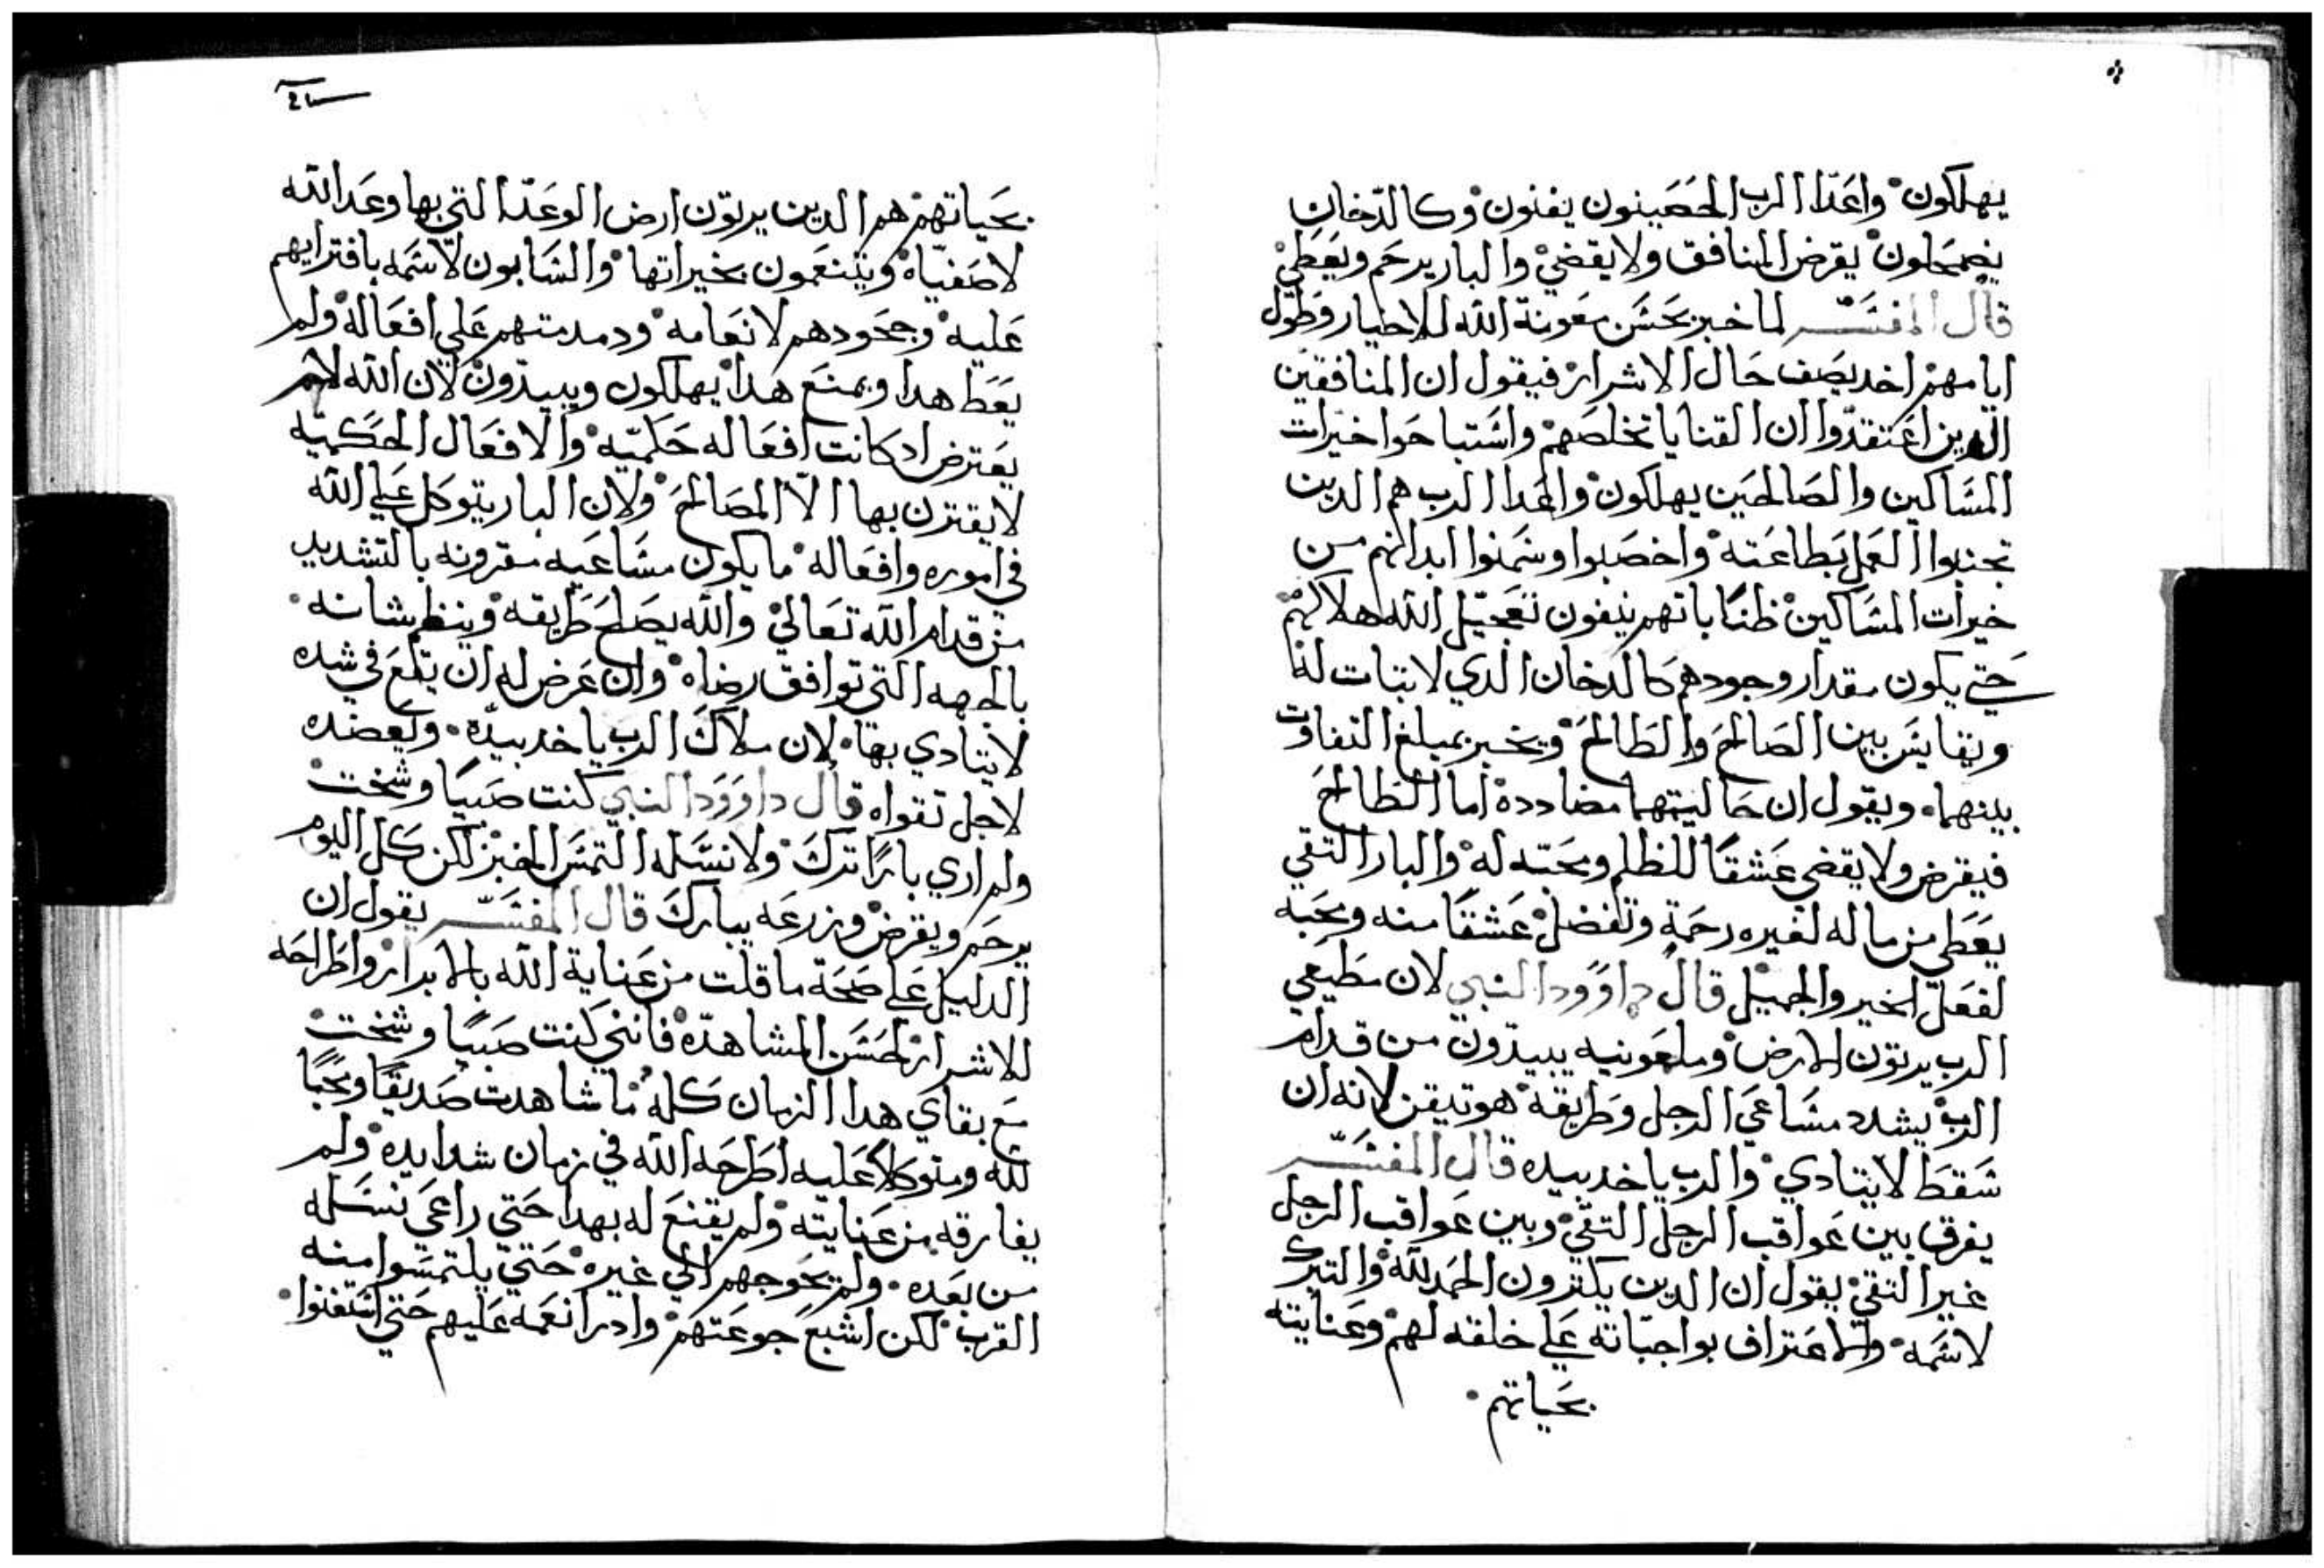 يهلكون واعدا الرب الحصينون يفنون وكالدخان
يضمحلون يقرض المنافق ولا يقضي والبار يرحم ويعطي
قال المفسر لما خبر بحسن معونة الله للاخيار وطول
ايامهم اخد يصف حال الاشرار فيقول ان المنافقين
الدين اعتقدوا ان القنايا تخلصهم واستباحوا خيرات
المساكين والصالحين يهلكون واعدا الرب هم الدين
تجنبوا العمل بطاعته واخصبوا وسمنوا ابدانهم من
خيرات المساكين ظنا بانهم ينفون تعجيل الله هلاكهم
حتي يكون مقدار وجودهم كالدخان الدي لا بتات له
ويقايس بين الصالح والطالح ويخبر بمبلغ التفاوت
بينهما ويقول ان حاليتهما مضاددة اما الطالح
فيقرض ولا يقضي عشقا للظلم ومحبته له والبار التقي
يعطي من ماله لغيره رحمة وتفضل عشقا منه ومحبه
لفعل الخير والجميل قال داوود النبي لان مطيعي
الرب يرتون الارض وملعونيه يبيدون من قدام
الرب يشدد مساعي الرجل وطريقه هو تيقن لانه ان
سقط لا يتادي والرب ياخد بيده قال المفسر
يفرق بين عواقب الرجل التقي وبين عواقب الرجل
غير التقي يقول ان الدين يكترون الحمد لله والتبرك
لاسمه والاعتراف بواجباته علي خلقه لهم وعنايته
بحياتهم
بحياتهم هم الدين يرتون ارض الوعد التي بها وعد الله
لاصفياه ويتنعمون بخيراتها والسابون لاسمه بافترايهم
عليه وجحودهم لانعامه ودمدمتهم علي افعاله ولم
يعط هدا ويمنع هدا يهلكون ويبيدون لان الله لا هم
يعترض اد كانت افعاله حكميه والافعال الحكميه
لا يقترن بها الا المصالح ولان البار يتوكل علي الله
في اموره وافعاله ما يكون مساعيه مقرونه بالتشديد
من قدام الله تعالي والله يصلح طريقه وينظم شانه
بالجهه التي توافق رضاه وان عرض له ان يقع في شده
لا يتادي بها لان ملاك الرب ياخد بيده ويعضده
لاجل تقواه قال داوود النبي كنت صبيا وشخت
ولم اري بارا ترك ولا نسله التمس الخبز لكن كل اليوم
يرحم ويقرض وزرعه يبارك قال المفسر يقول ان
الدليل علي صحة ما قلت من عناية الله بالابرار واطراحه
للاشرار لحسن المشاهده فانني كنت صبيا وشخت
مع بقاي هدا الزمان كله ما شاهدت صديقا ومحبا
لله ومتوكلا عليه اطرحه الله في زمان شدايده ولم
يفارقه من عنايته ولم يقنع له بهدا حتي راعي نسله
من بعده ولم يحوجهم الي غيره حتي يلتمسوا منه
القرب لكن اشبع جوعتهم وادر انعمه عليهم حتي استغنوا